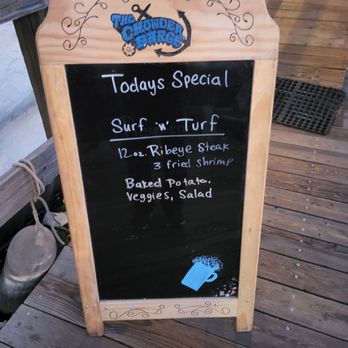 THE
CHOWDER
BARGE
Todays Special
Surf 'n' Turf
12 oz. Ribeye Steak
3 fried shrimp
Baked Potato,
Veggies, Salad